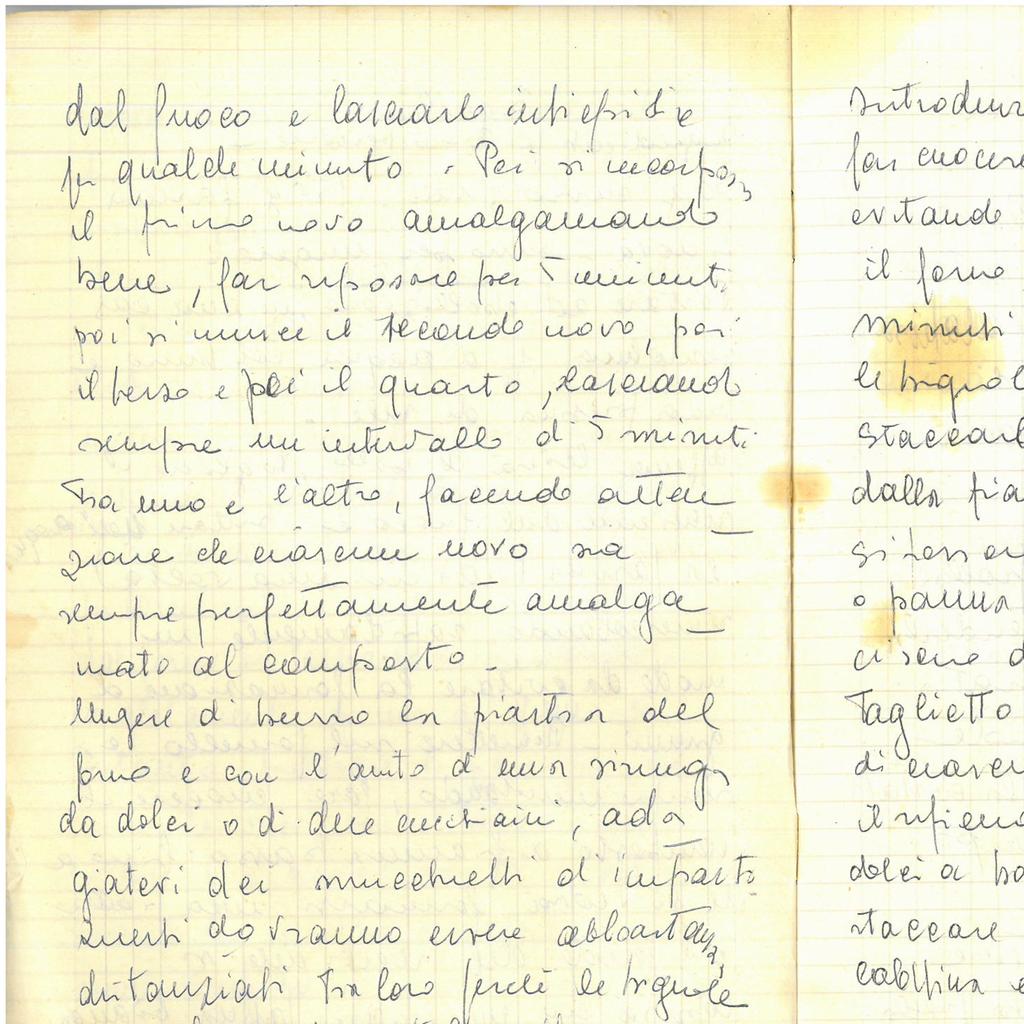 dal fuoco e lasciarlo intiepidire
per qualche minuto. Poi si incorpora
il primo uovo amalgamando
bene, far riposare per 5 minuti
poi si unisce il secondo uovo, poi
il terzo e poi il quarto, lasciando
sempre un intervallo di 5 minuti
tra uno e l'altro, facendo atten
zione che ciascun uovo sia
sempre perfettamente amalga
mato al composto.
Ungere di burro la piastra del
forno e con l'aiuto di una siringa
da dolci o di due cucchiaini, ada
giatevi dei mucchietti d'impasto
Questi dovranno essere abbastanza
distanziati tra loro perché le bignole
introdurre
far cuocere
evitando
il forno
minuti
le bignol
staccarl
dalla pia
o panna
Taglietto
di ciascun
il ripieno
dolci a
staccare